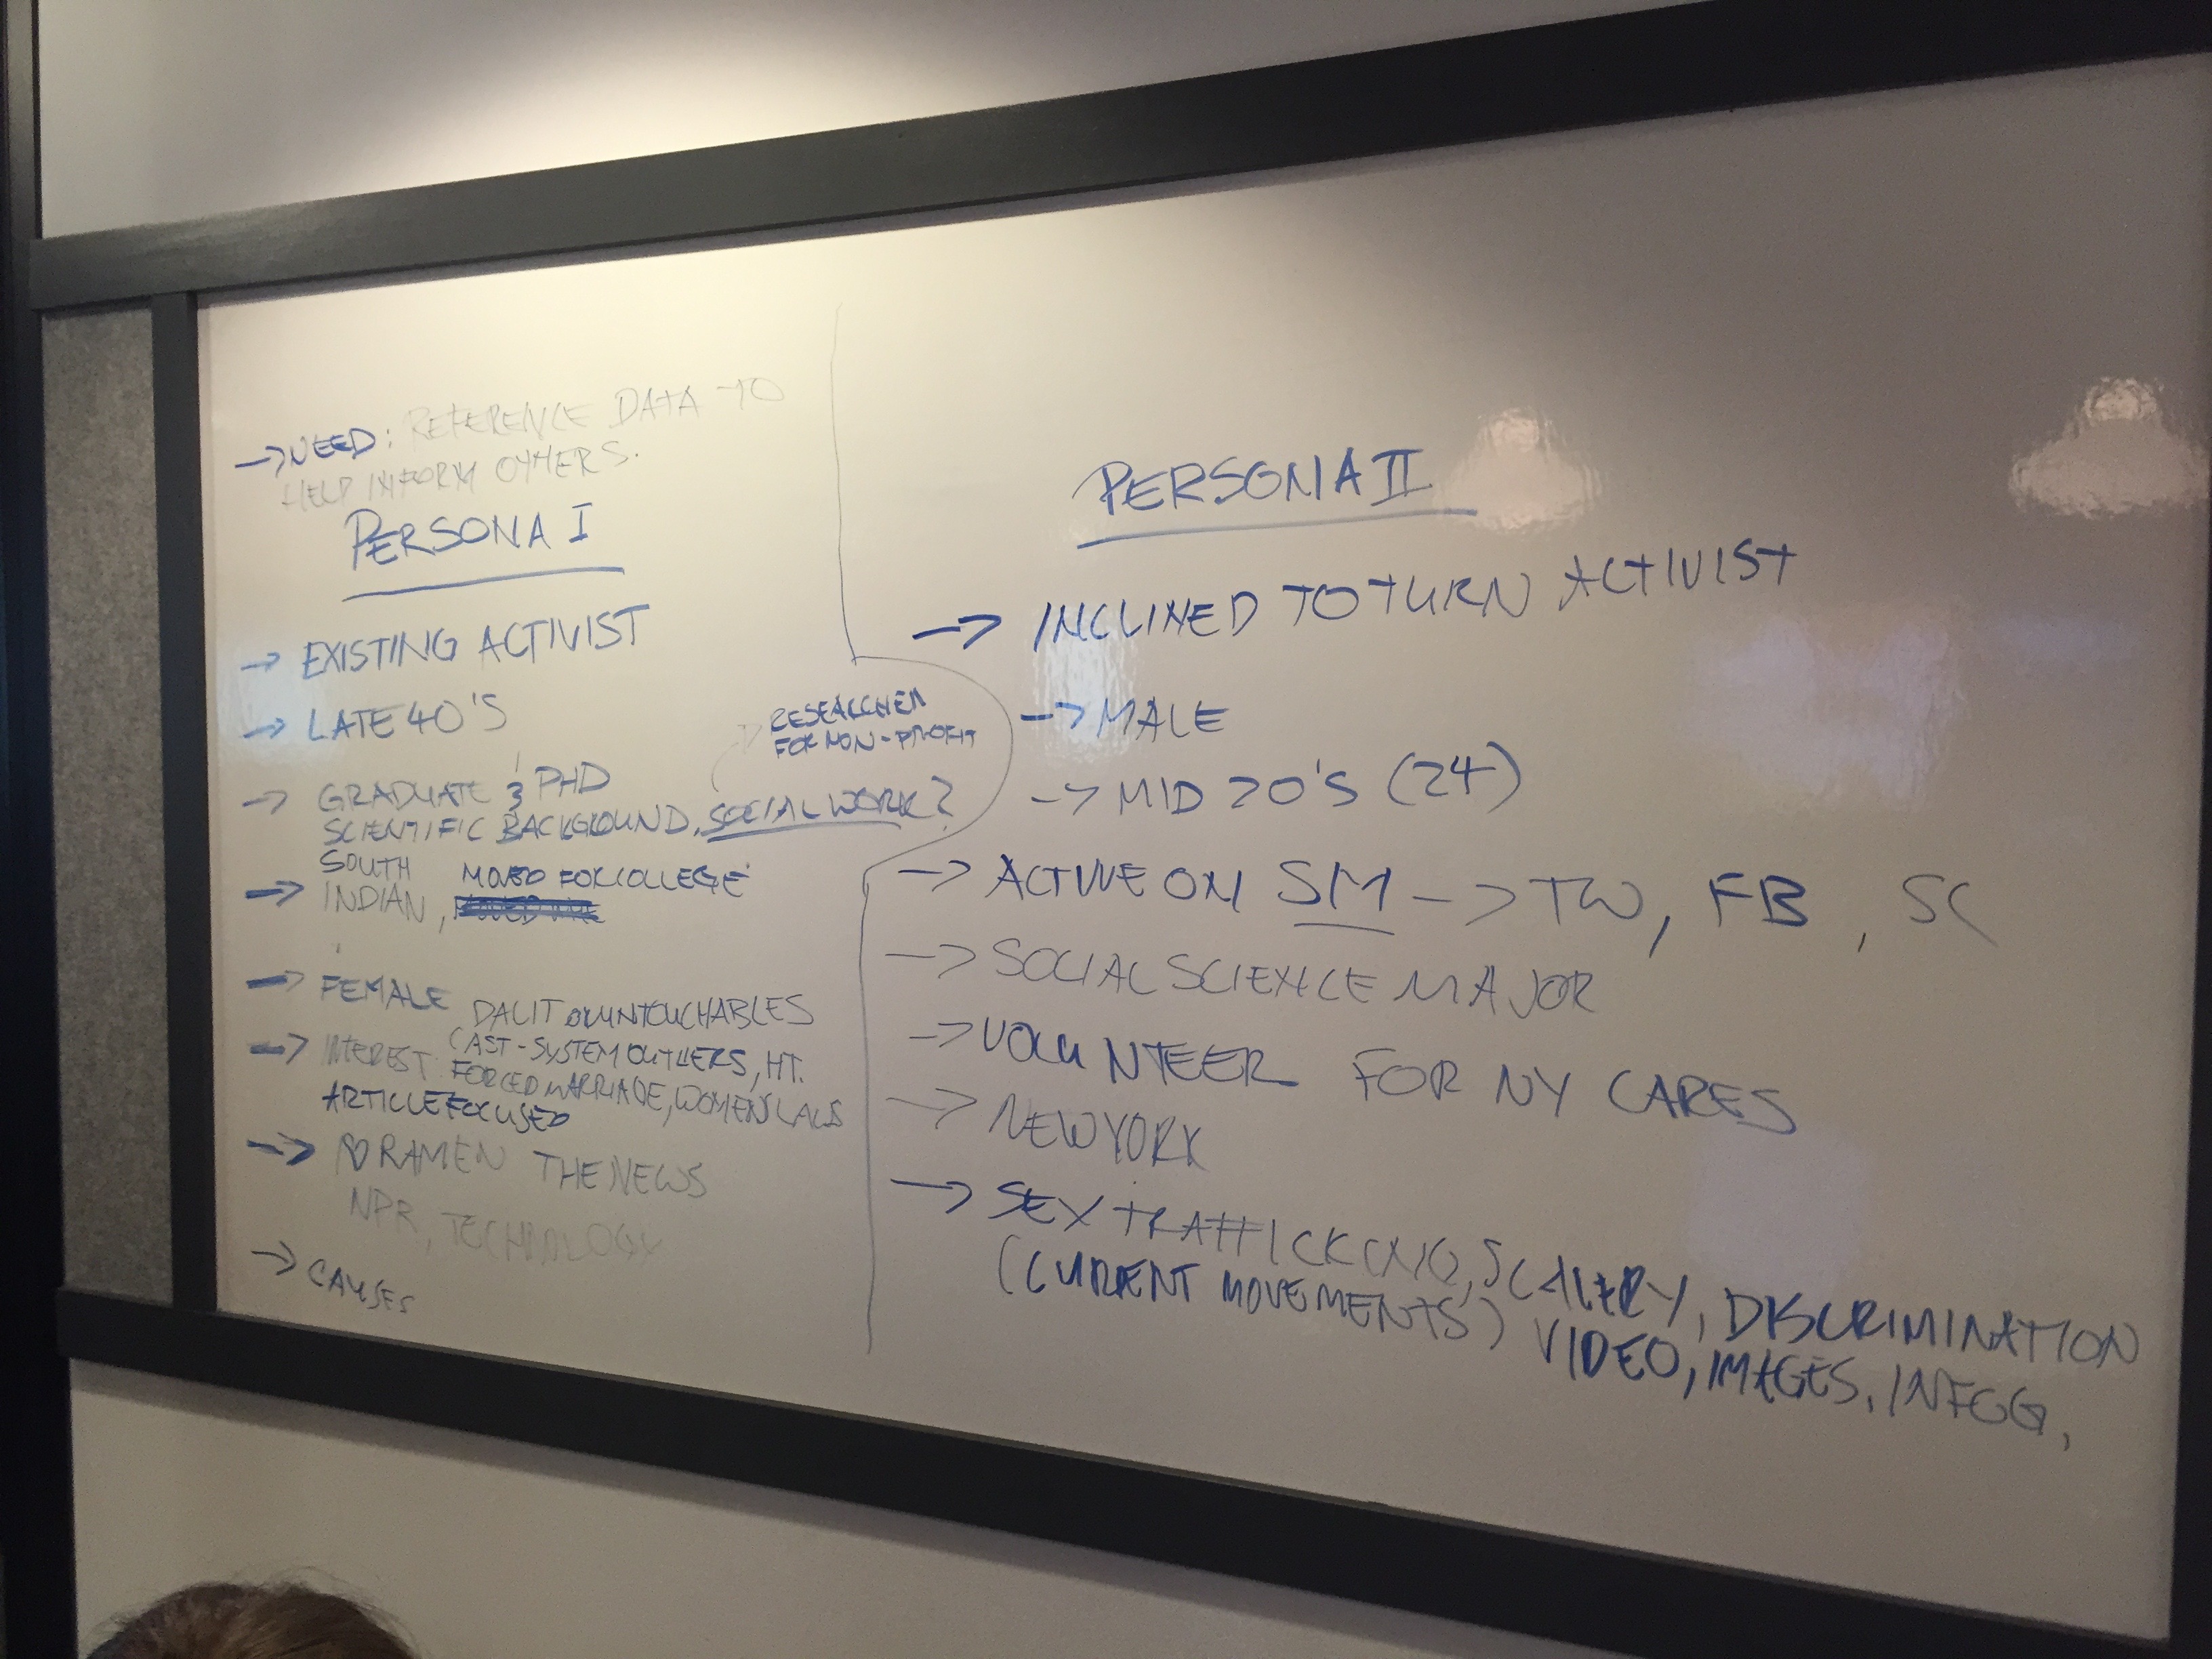 →NEED: REFERENCE DATA TO
HELP INFORM OTHERS.
PERSONA I
→ EXISTING ACTIVIST
→ LATE 40'S
RESEARCHER
FOR NON-PROFIT
→ GRADUATE & PHD
SCIENTIFIC BACKGROUND, SOCIAL WORK?
SOUTH
→ INDIAN, MOVED FOR COLLEGE
→ FEMALE
DALIT OR UNTOUCHABLES
→ INTEREST: CAST-SYSTEM OUTLIERS, HT.
FORCED MARRIAGE, WOMENS LAWS
ARTICLE FOCUSED
→ RAMEN THE NEWS
NPR, TECHNOLOGY
→ CAUSES
PERSONA II
→ INCLINED TO TURN ACTIVIST
→ MALE
→ MID 20'S (24)
→ ACTIVE ON SM → TW, FB, SC
→ SOCIAL SCIENCE MAJOR
→ VOLUNTEER FOR NY CARES
→ NEW YORK
→ SEX TRAFFICKING, SLAVERY, DISCRIMINATION
(CURRENT MOVEMENTS) VIDEO, IMAGES, INFOG,